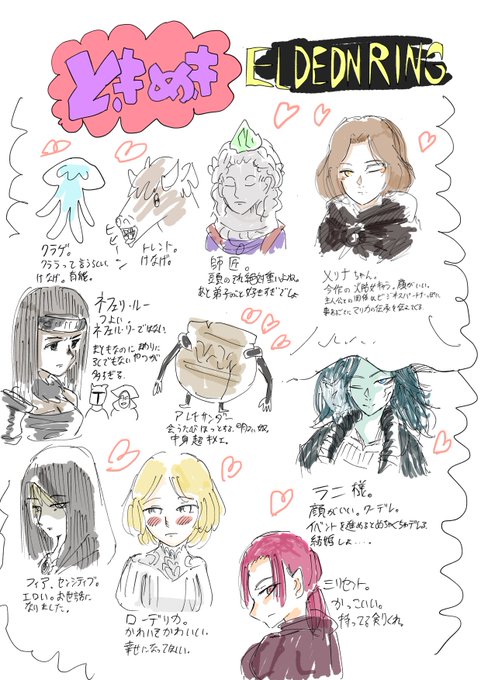 ときめき
ELDEDNRING
クラゲ。
クララって言うらしい
けなげ。有能。
ヒヒーン
トレント。
けなげ。
師匠。
頭のそれ絶対重いよね。
あと弟子のこと好きすぎでしょ
メリナちゃん。
今作の火防女枠。顔がいい。
主人公との関係はビジネスパートナーっぽい
ネフェリ・ルー
つよい。
ネフェル・リーではない。
まともなのに周りに
ろくでもないやつが
多すぎる。
アレキサンダー
会うたびほっとする。
中身超キモェ。
ラニ様。
顔がいい。クーデレ。
イベントを進めるとめちゃくちゃデレる。
結婚しよ……。
フィア、センシティブ。
エロい。お世話に
なりました。
ローデリカ。
かわいさかわいい。
幸せになってほしい。
ミリセント。
かっこいい。